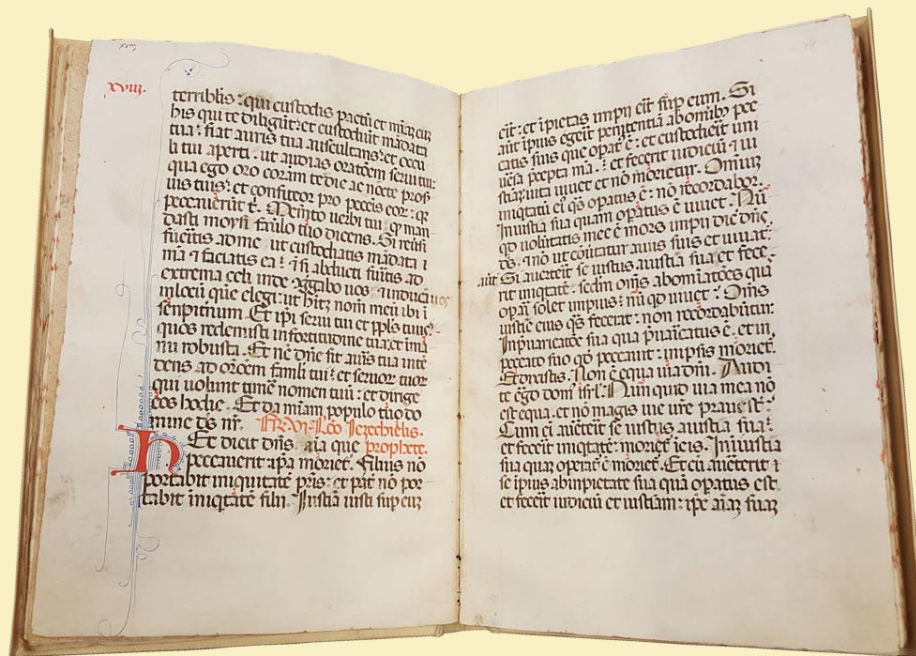 xviij.
terribilis: qui custodis pactū et mīam cū
his qui te diligūt: et custodiūt mādata
tua: fiat auris tua auscultans: et ocu
li tui aperti: ut audias oratōem serui tui:
qua ego oro corām te die ac nocte pro fi
liis tuis: et confiteor pro peccīs eor: q̄
peccauerūt t̄. Memēto uerbi tui, q̄ man
dasti moysi fāulo tuo dicens. Si reūsi
fueritis ad me, ut custodiatis mādata
mā et faciatis ea: et si abducti fūitis ad
extrema celi inde aggabo uos, et inducā uos
in locū quē elegi: ut hītz nom̄ meū ibi ī
sempitnum. Et ip̄i serui tui et ppl̄s tuus:
quos redemisti in fortitudine tua: et ī mā
nu robusta. Et nē dn̄e sit auris tua inte
dens ad orōem famli tui: et seruor tuor
qui uolunt timē nomen tuū: et dirige
eos hodie. Et da mīam populo tuo do
mine ds̄ nr̄. Fr̄. VI. Lēo Jezechielis.
Hec dicit dn̄s. aīa que prophete.
peccauerit ipā moriet̄. Filius nō
portabit iniquitatē pr̄is: et pat̄ nō por
tabit iniqtātē filii. Iustitia iusti sup eū
eīt: et īpietas impii eīt sup eum. Si
aūt īpius egerit penitentiā ab oīnibus pec
catis suis que opat̄ ē: et custodierit uni
uersa p̄cepta mā: et fecerit iudiciū et iu
stitiaz, uita uiuet et nō morietur. Omīuz
iniqtatū eī qs̄ opatus ē: nō recordabor:
In iustitia sua quam opatus ē uiuet. Nū
qd uolūtatis mee ē mors impii dic̄ dn̄s
ds̄. et nō ut cōūtatur a uiis suis et uiuat.
aūt Si auerteīt se iustus a iustitia sua et fece
rit iniqtatē: scdm om̄s abomīatōes quā
opari solet impius: nūqd uiuet. Om̄s
iustitie eius qs̄ fecerat: non recordabūtur.
In p̄uaricatōe sua qua p̄uaīcatus ē, et in
peccato suo qd̄ peccauit: in ip̄sis moriet̄.
Et dixistis. Non ē equa uia dn̄i. Audi
te ēgo dom̄ isrl̄. Num quid uia mea nō
est equa, et nō magis uie ur̄e praue st̄:
Cum eī aūteīt se iustus a iustitia sua:
et fecerit iniqtatē: moriet̄ ī eis. In iustitia
sua quaz operat̄ ē moriet̄. Et cū auerterit ī
se īpius ab īmpietate sua quā opatus est
et feceīt iudiciū et iustitiam: ip̄e aīaz suaz